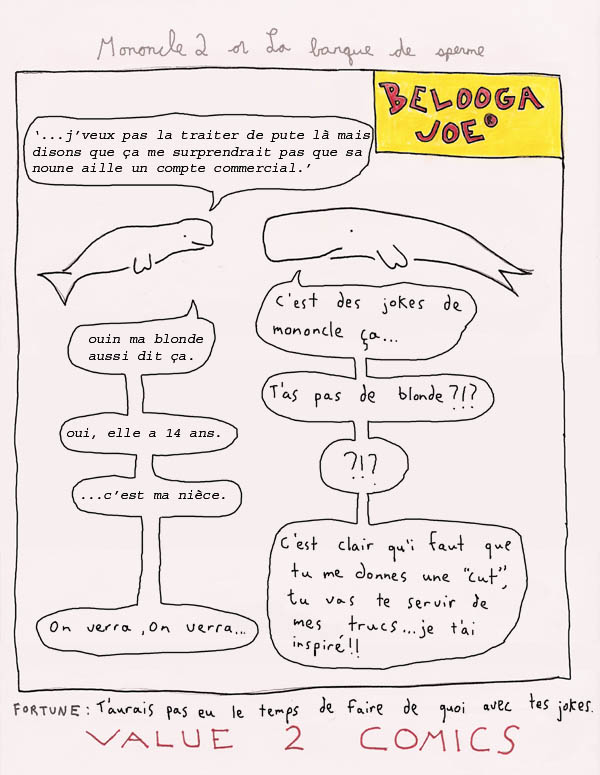 Mononcle 2 or La banque de sperme
BELOOGA
JOE®
'...j'veux pas la traiter de pute là mais
disons que ça me surprendrait pas que sa
noune aille un compte commercial.'
C'est des jokes de
mononcle ça...
ouin ma blonde
aussi dit ça.
T'as pas de blonde?!?
oui, elle a 14 ans.
?!?
...c'est ma nièce.
C'est clair qu'i faut que
tu me donnes une "cut",
tu vas te servir de
mes trucs...je t'ai
inspiré!!
On verra, On verra...
FORTUNE: T'aurais pas eu le temps de faire de quoi avec tes jokes.
VALUE 2 COMICS